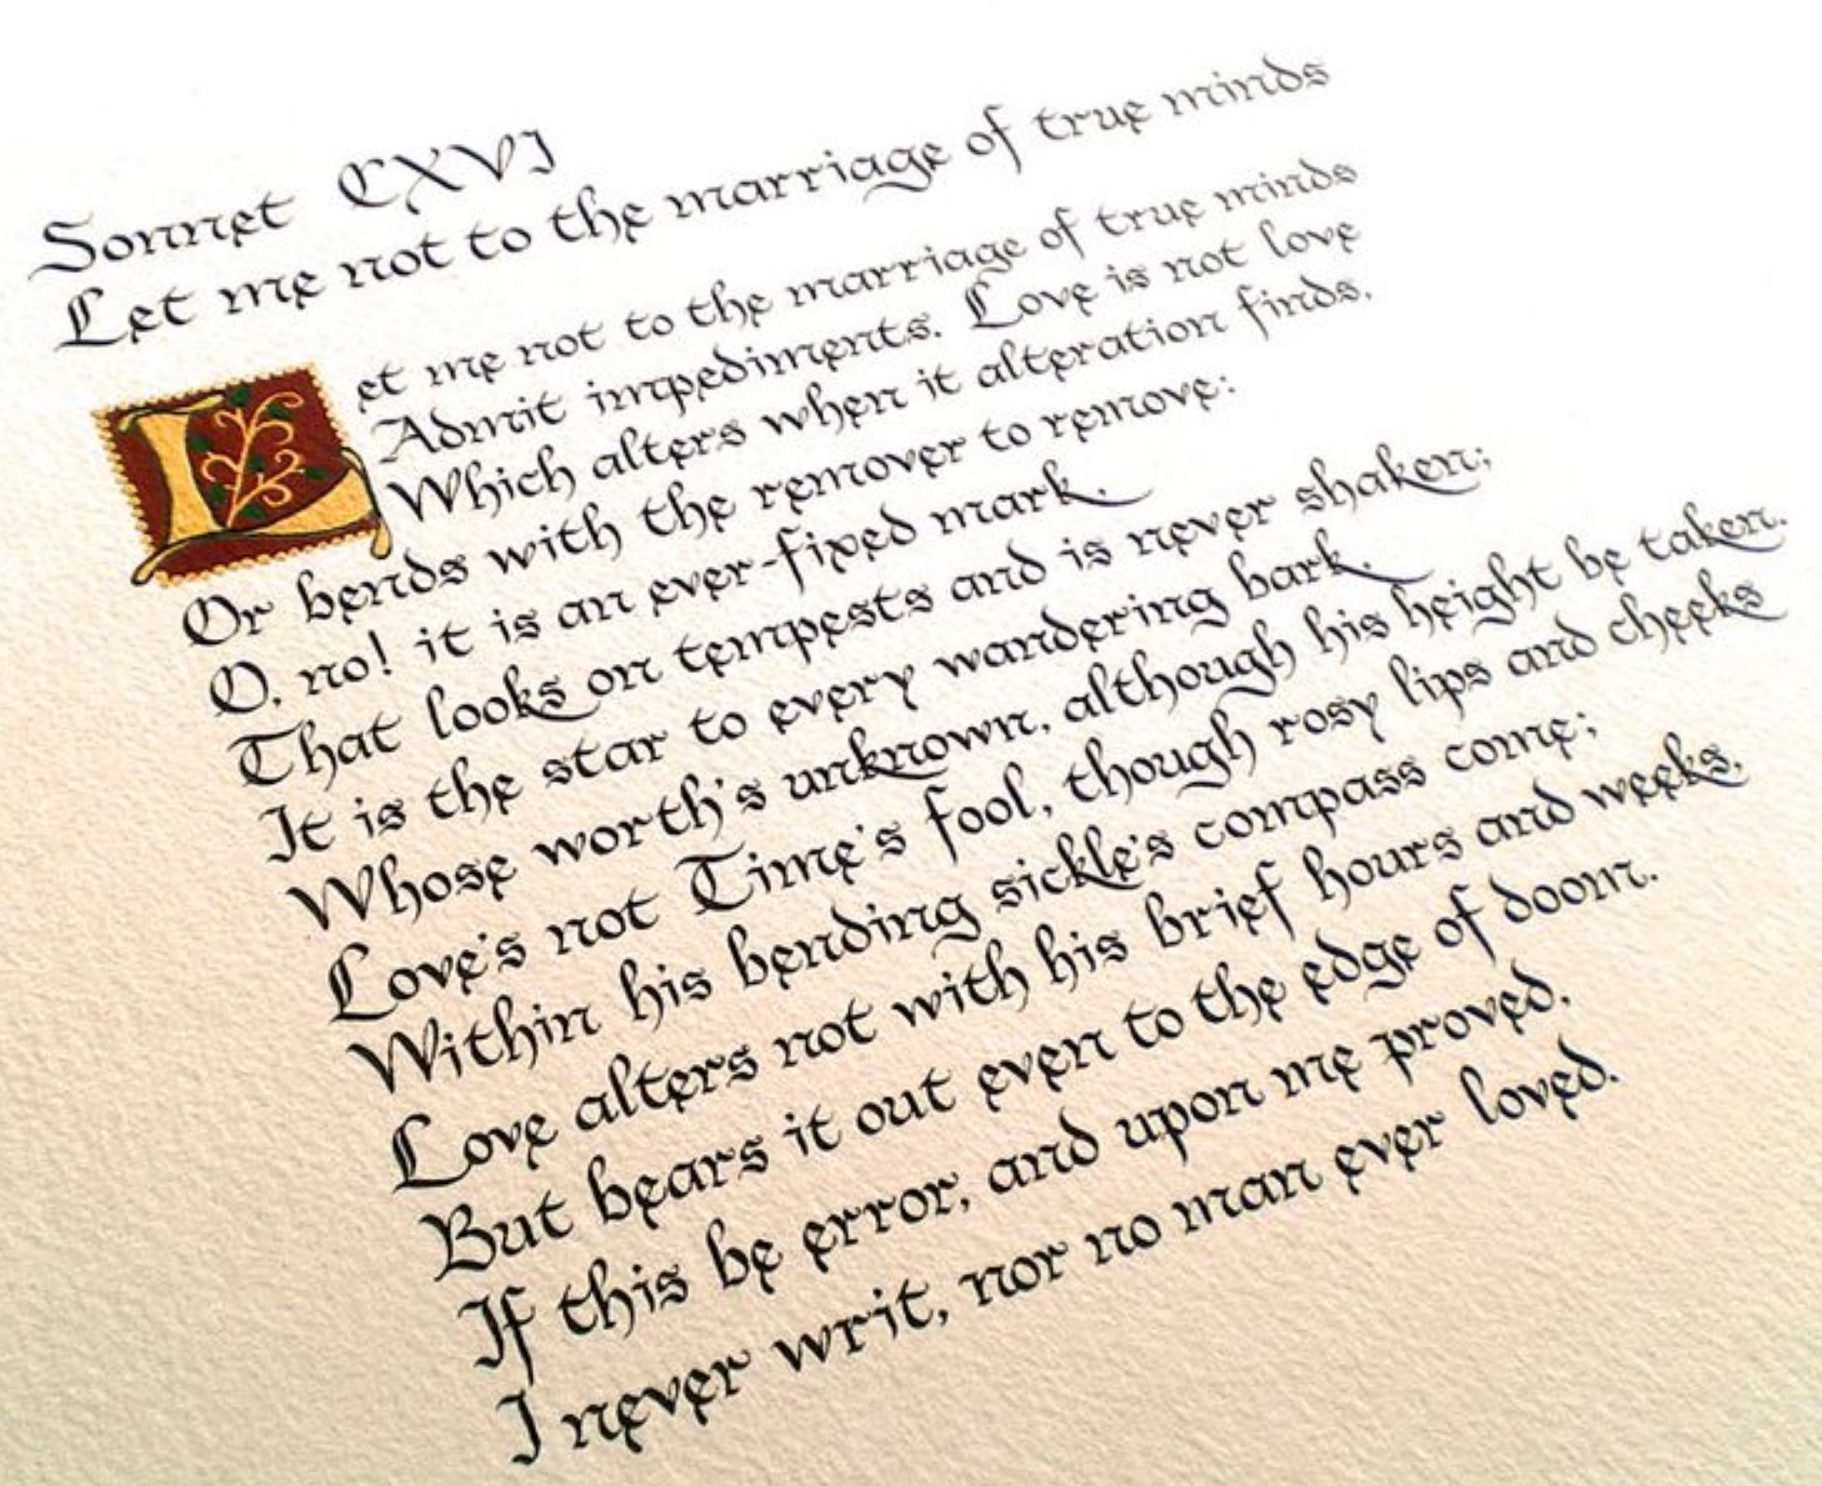 Sonnet CXVI
Let me not to the marriage of true minds
Let me not to the marriage of true minds
Admit impediments. Love is not love
Which alters when it alteration finds,
Or bends with the remover to remove:
O, no! it is an ever-fixed mark,
That looks on tempests and is never shaken;
It is the star to every wandering bark,
Whose worth's unknown, although his height be taken.
Love's not Time's fool, though rosy lips and cheeks
Within his bending sickle's compass come;
Love alters not with his brief hours and weeks,
But bears it out even to the edge of doom.
If this be error, and upon me proved,
I never writ, nor no man ever loved.